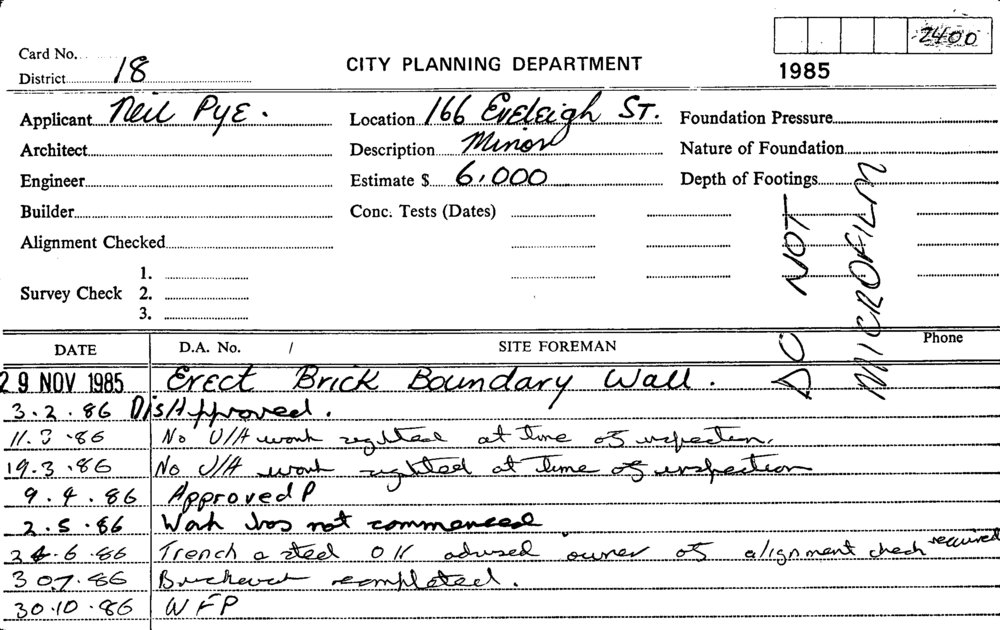 2400
Card No.
District 18
CITY PLANNING DEPARTMENT
1985
Applicant Neil Pye.
Location 166 Eveleigh St.
Foundation Pressure
Architect
Description Minor
Nature of Foundation
Engineer
Estimate $ 6,000
Depth of Footings
Builder
Conc. Tests (Dates)
Alignment Checked
Survey Check
1.
2.
3.
DO NOT
MICROFILM
DATE
D.A. No. /
SITE FOREMAN
Phone
29 NOV 1985 Erect Brick Boundary Wall.
3.2.86 DisApproved.
11.3.86 No U/A work sighted at time of inspection.
19.3.86 No U/A work sighted at time of inspection
9.4.86 Approved P
2.5.86 Work has not commenced
24.6.86 Trench & steel OK advised owner of alignment check required
30.7.86 Brickwork completed.
30.10.86 WFP